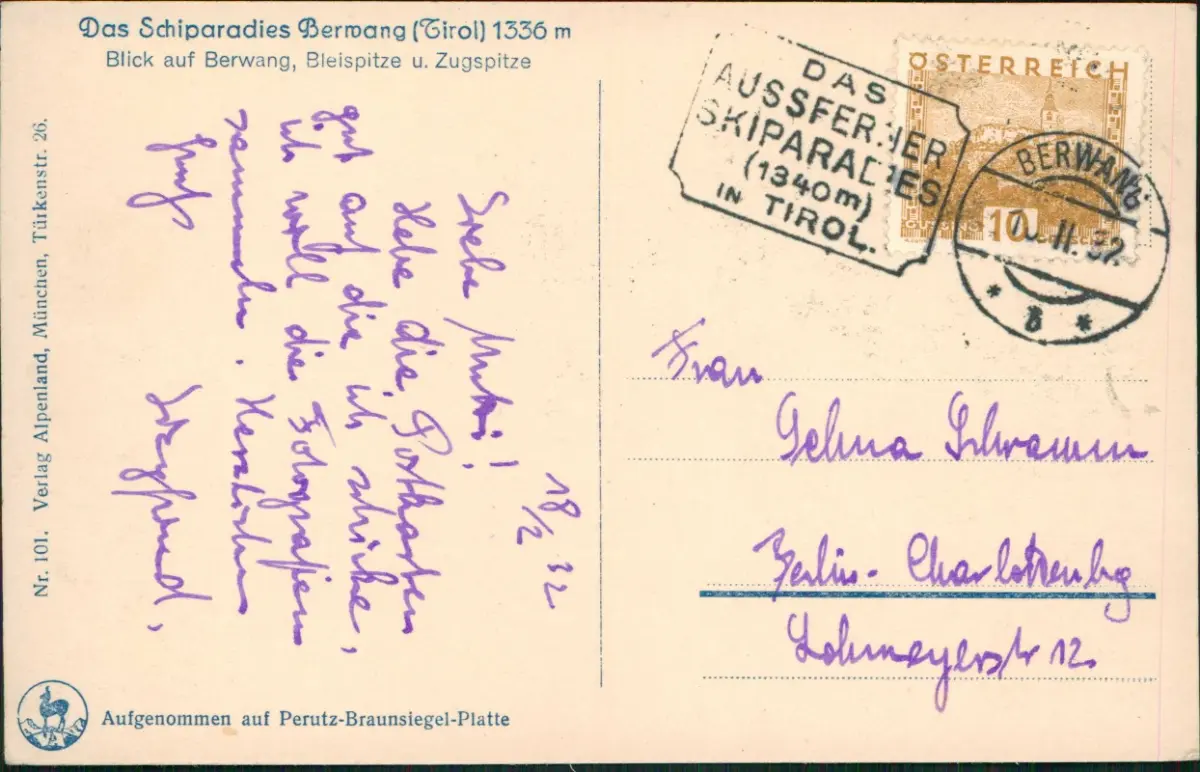 Das Schiparadies Berwang (Tirol) 1336 m
Blick auf Berwang, Bleispitze u. Zugspitze
Nr. 101. Verlag Alpenland, München, Türkenstr. 26.
18/2 32
Liebe Mutti!
Hebe die Postkarten
gut auf die ich schicke,
ich will die Fotografien
sammeln. Herzlichen
Gruß Siegfried,
Aufgenommen auf Perutz-Braunsiegel-Platte
DAS
AUSSFERNER
SKIPARADIES
(1340m)
IN TIROL.
ÖSTERREICH
10
BERWANG
II. 32
Frau
Schramm
Berlin-Charlottenbg
Lohmeyerstr 12.